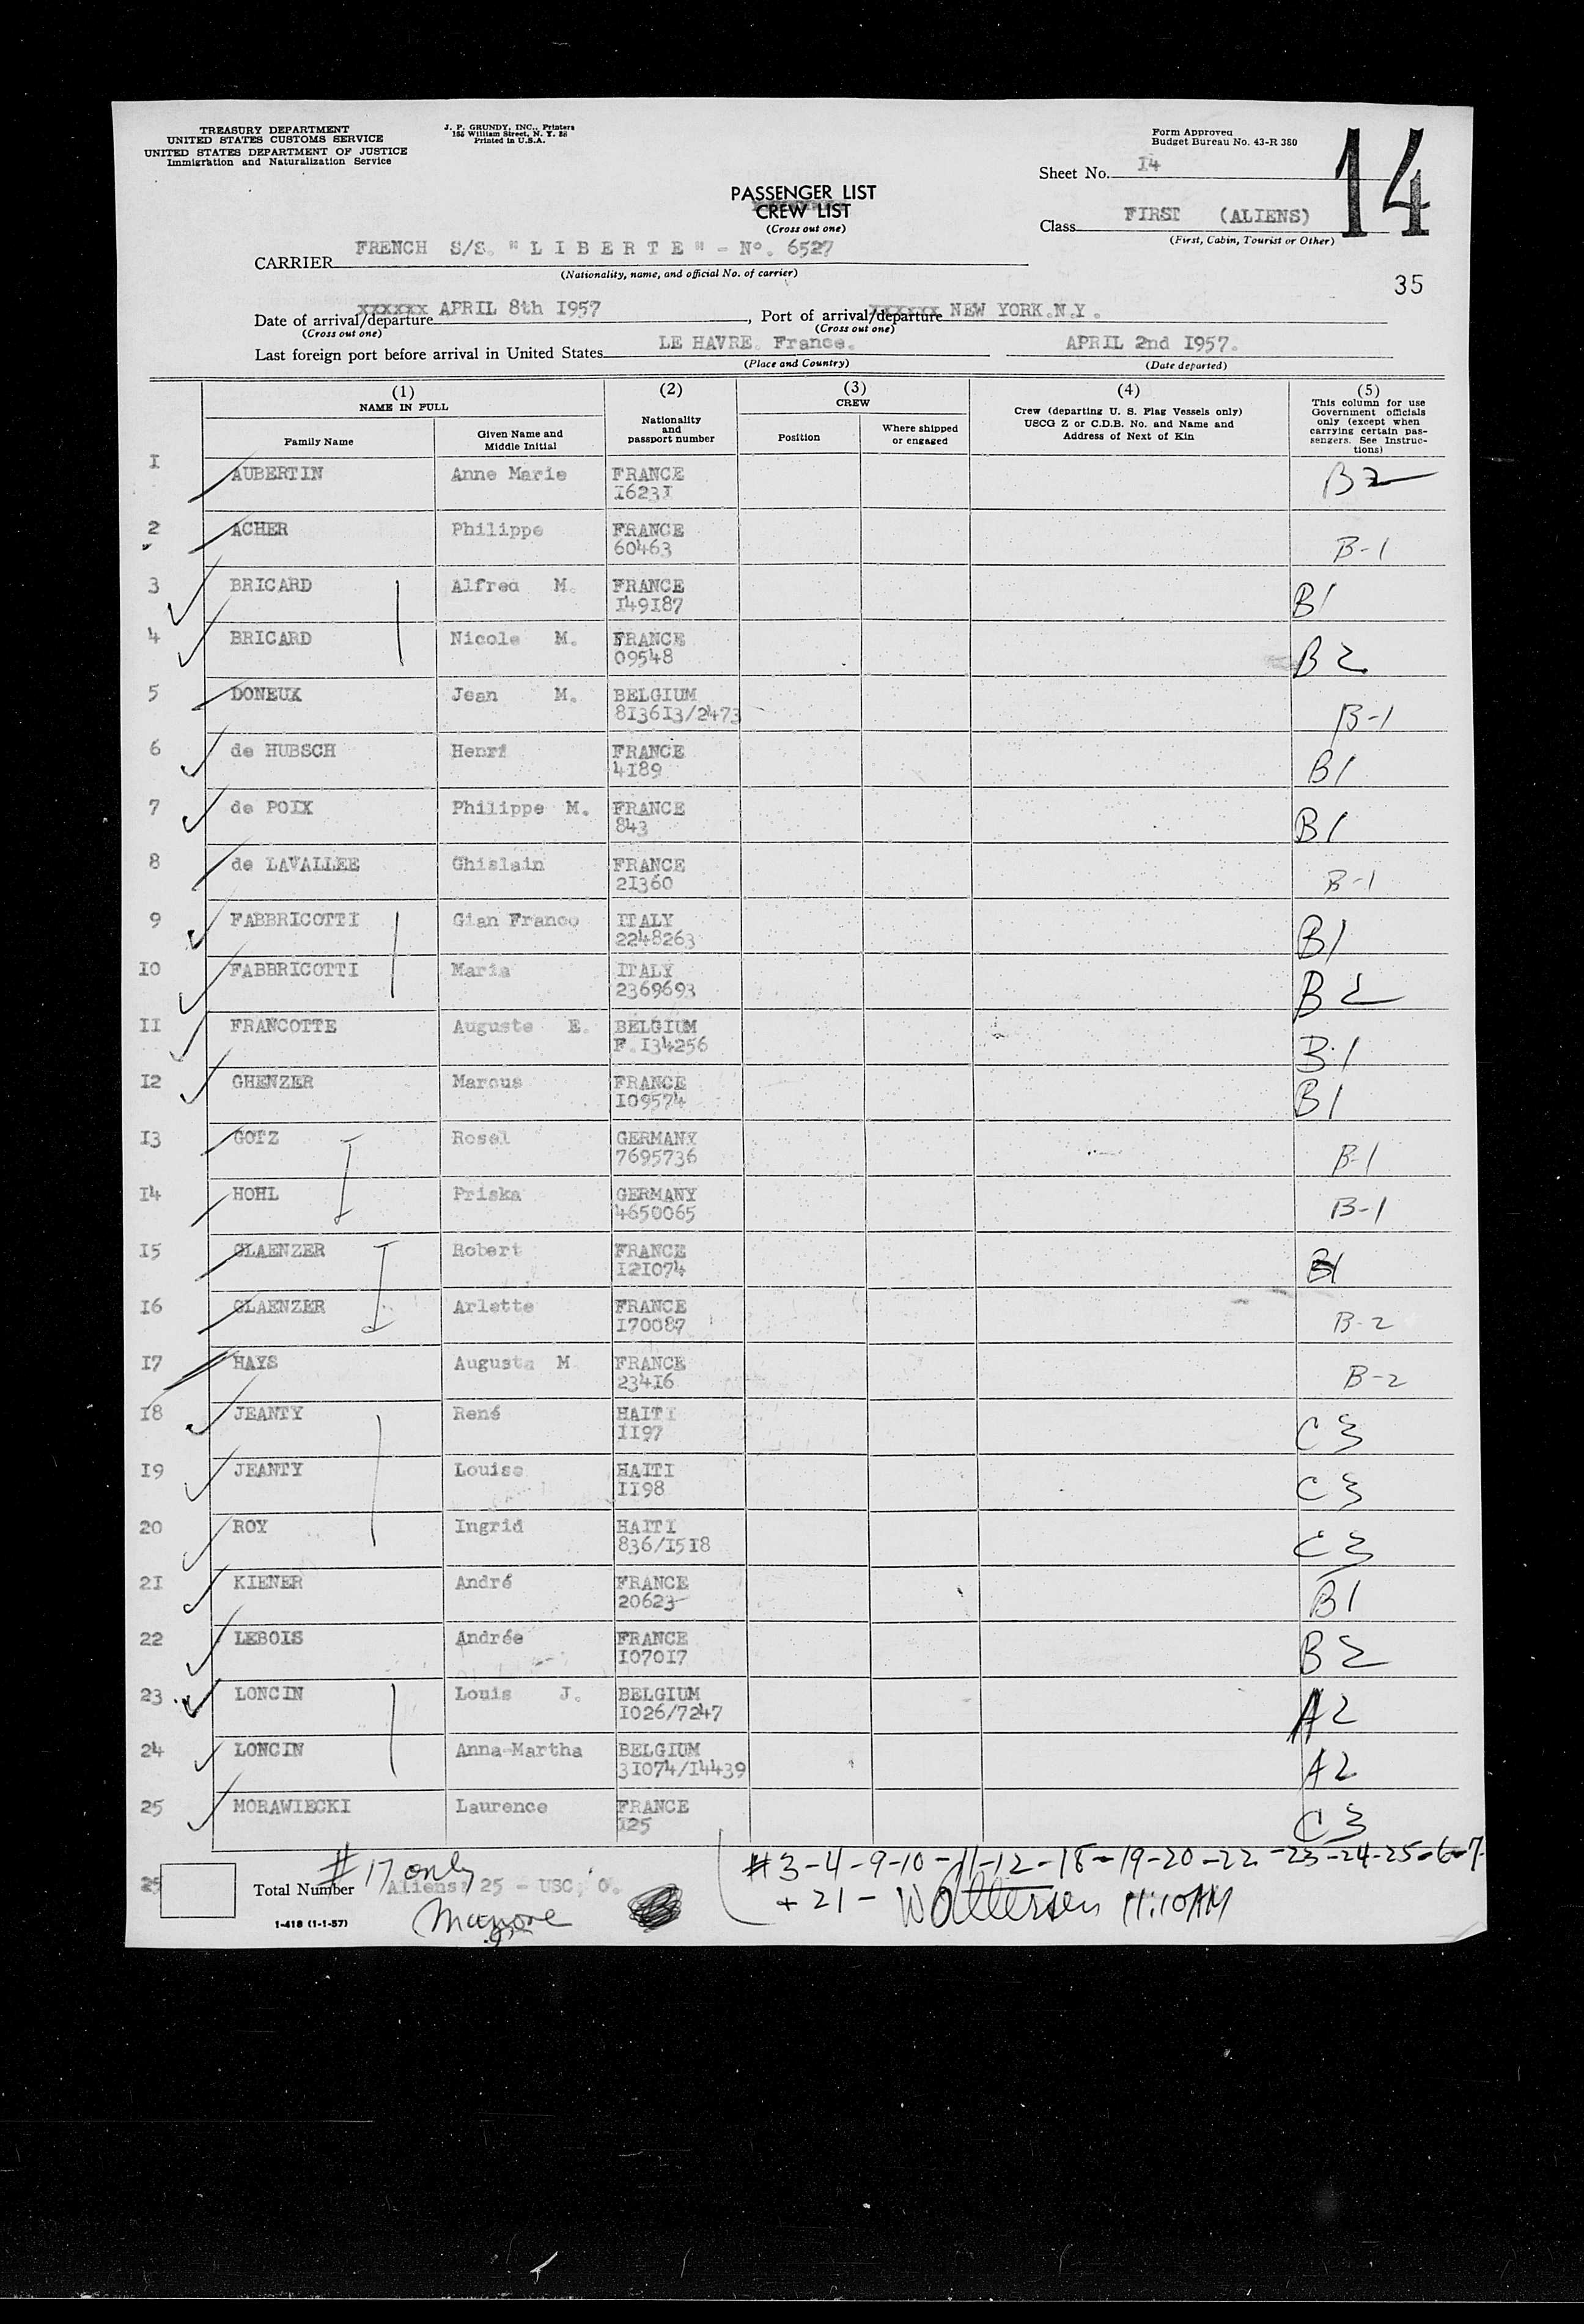 TREASURY DEPARTMENT
UNITED STATES CUSTOMS SERVICE
UNITED STATES DEPARTMENT OF JUSTICE
Immigration and Naturalization Service
J. P. GRUNDY, INC., Printers
Printed in U.S.A.
Form Approved
Budget Bureau No. 43-R 380
Sheet No. I4
14
PASSENGER LIST
CREW LIST
(Cross out one)
Class FIRST (ALIENS)
(First, Cabin, Tourist or Other)
CARRIER FRENCH S/S. "L I B E R T E" - N°. 6527
(Nationality, name, and official No. of carrier)
35
Date of arrival/departure xxxxxx APRIL 8th I957, Port of arrival/departure xxxxxx NEW YORK.N.Y.
(Cross out one) (Cross out one)
Last foreign port before arrival in United States LE HAVRE. France. APRIL 2nd I957.
(Place and Country) (Date departed)
(1) NAME IN FULL (2) Nationality and passport number (3) CREW (4) Crew (departing U. S. Flag Vessels only) USCG Z or C.D.B. No. and Name and Address of Next of Kin (5) This column for use Government officials only (except when carrying certain passengers. See Instructions)
Family Name Given Name and Middle Initial Position Where shipped or engaged
I AUBERTIN Anne Marie FRANCE I623I B2
2 ACHER Philippe FRANCE 60463 B-1
3 BRICARD Alfred M. FRANCE I49I87 B1
4 BRICARD Nicole M. FRANCE 09548 B2
5 DONEUX Jean M. BELGIUM 8I36I3/2473 B-1
6 de HUBSCH Henri FRANCE 4I89 B1
7 de POIX Philippe M. FRANCE 843 B1
8 de LAVALLEE Ghislain FRANCE 2I360 B-1
9 FABBRICOTTI Gian Franco ITALY 2248263 B1
I0 FABBRICOTTI Maria ITALY 2369693 B2
II FRANCOTTE Auguste E. BELGIUM F.I34256 B1
I2 GHENZER Marcus FRANCE I09574 B1
I3 GOTZ Rosel GERMANY 7695736 B-1
I4 HOHL Priska GERMANY 4650065 B-1
I5 GLAENZER Robert FRANCE I2I074 B1
I6 GLAENZER Arlette FRANCE I70087 B-2
I7 HAYS Augusta M FRANCE 234I6 B-2
I8 JEANTY René HAITI II97 C3
I9 JEANTY Louise HAITI II98 C3
20 ROY Ingrid HAITI 836/I5I8 C3
2I KIENER André FRANCE 20623 B1
22 LEBOIS Andrée FRANCE I070I7 B2
23 LONCIN Louis J. BELGIUM I026/7247 A2
24 LONCIN Anna-Martha BELGIUM 3I074/I4439 A2
25 MORAWIECKI Laurence FRANCE I25 C3
#17 only
#3-4-9-10-11-12-18-19-20-22-23-24-25-6-7-
25 Total Number Aliens: 25 - USC, 0.
+21- 11:10AM
1-418 (1-1-57)